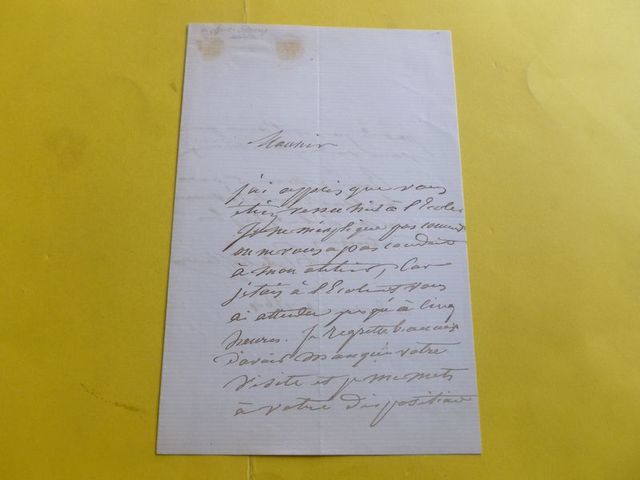 Monsieur
j'ai appris que vous
étiez venu hier à l'Ecole
Je ne m'explique pas comment
on ne vous a pas conduit
à mon atelier, Car
j'étais à l'Ecole et vous
ai attendu jusqu'à cinq
heures. je regrette beaucoup
d'avoir manqué votre
visite et je me mets
à votre disposition